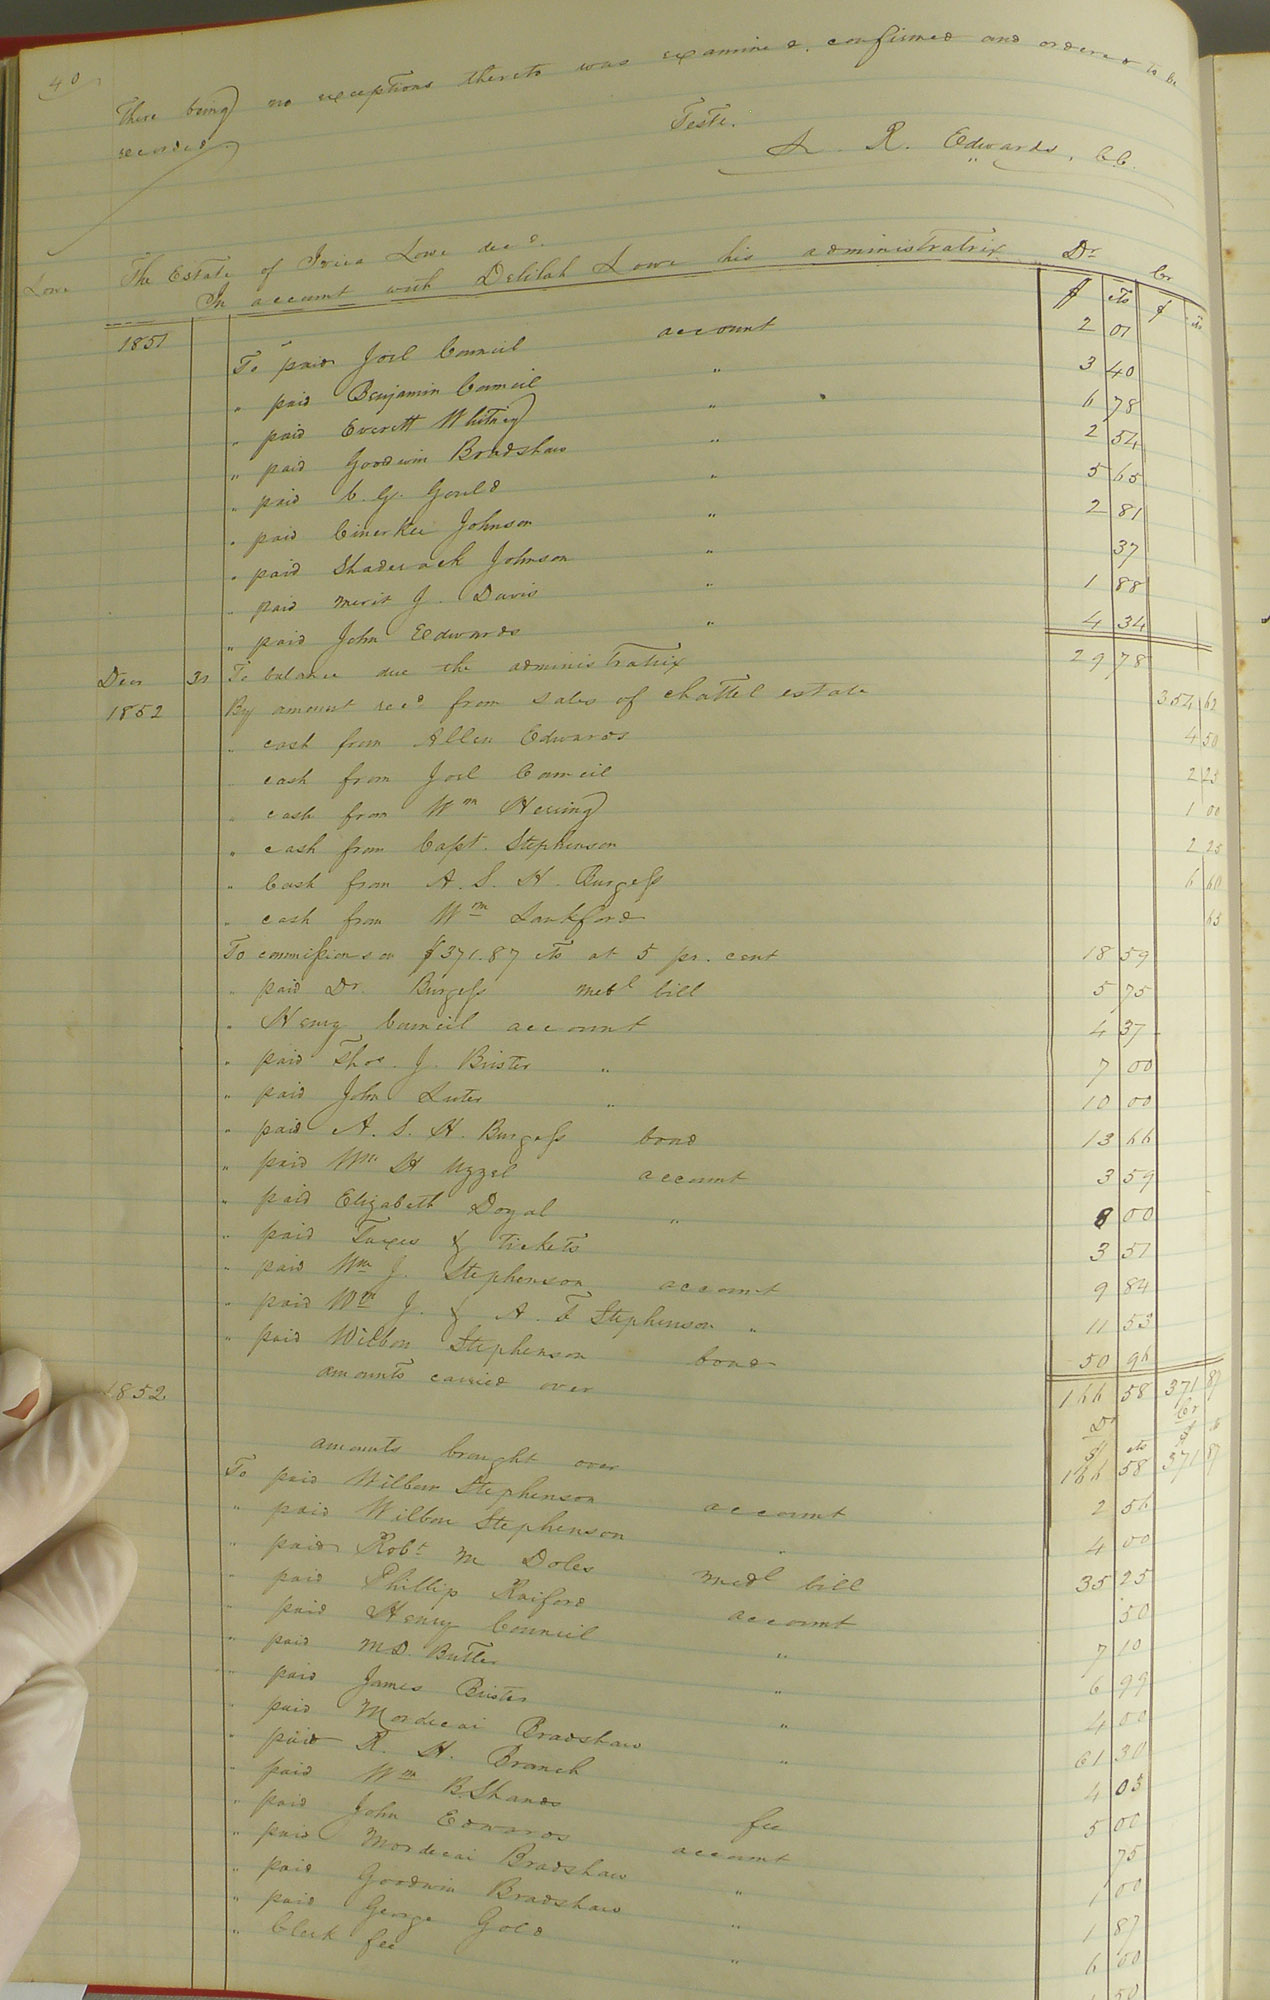 40
There being no exceptions thereto was examined, confirmed and ordered to be
recorded.
Teste.
L. R. Edwards, C.C.
Lowe The Estate of Lowe decd.
In account with Delilah Lowe his administratrix Dr Cr
$ cts $ cts
1851 To paid Joel Council account 2 01
" paid Benjamin Council " 3 40
" paid Everett Whitney " 6 78
" paid Goodwin Bradshaw " 2 54
" paid C. G. Gould " 5 65
" paid Johnson " 2 81
" paid Shaderach Johnson " 37
" paid Merit J. Davis " 1 88
" paid John Edwards " 4 34
Decr 31 To balance due the administratrix 29 78
1852 By amount recd from sales of chattel estate 354 62
" cash from Allen Edwards 4 50
" cash from Joel Council 2 25
" cash from Wm Herring 1 00
" cash from Capt. Stephenson 2 25
" Cash from A. S. H. Burgess 6 60
" cash from Wm Lankford 65
To commissions on $371.87 cts at 5 pr. cent 18 59
" paid Dr. Burgess medl bill 5 75
" Henry Council account 4 37
" paid Thos. J. Brister " 7 00
" paid John Luter " 10 00
" paid A. S. H. Burgess bond 13 66
" paid Wm H Uzzel account 3 59
" paid Elizabeth Doyal " 8 00
" paid Taxes & tickets 3 51
" paid Wm J. Stephenson account 9 84
" paid Wm J. & A. F Stephenson " 11 53
" paid Wilbon Stephenson bond 50 96
amounts carried over 166 58 371 87
1852 Dr Cr
$ cts $
amounts brought over 166 58 371 87
To paid Wilbon Stephenson account 2 56
" paid Wilbon Stephenson " 4 00
" paid Robt M Doles medl bill 35 25
" paid Phillip Raiford account 50
" paid Henry Council " 7 10
" paid M.D. Butler " 6 99
" paid James Brister " 4 00
" paid Mordecai Bradshaw " 61 30
" paid R. H. Branch 4 05
" paid Wm B. Shands fee 5 00
" paid John Edwards account 75
" paid Mordecai Bradshaw " 1 00
" paid Goodwin Bradshaw " 1 87
" paid George Gold " 6 00
" Clerk fee 50